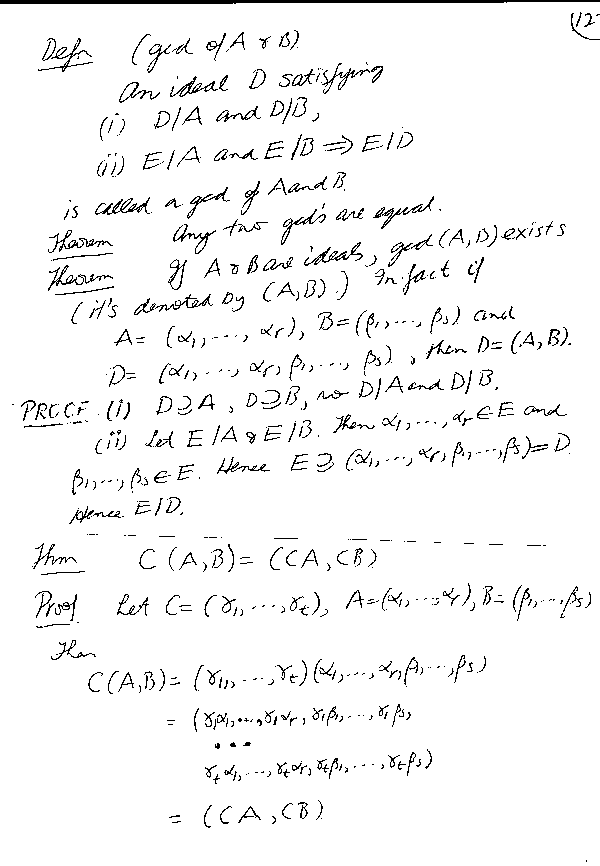 (12-
Defn (gcd of A & B)
An ideal D satisfying
(i) D/A and D/B,
(ii) E/A and E/B ⇒ E/D
is called a gcd of A and B.
Theorem Any two gcd's are equal.
Theorem If A & B are ideals, gcd(A,D) exists
(it's denoted by (A,B).) In fact if
A= (α₁,...,αᵣ), B=(β₁,...,βₛ) and
D= (α₁,...,αᵣ,β₁,...,βₛ), then D=(A,B).
PROOF (i) D⊇A, D⊇B, so D/A and D/B.
(ii) Let E/A & E/B. Then α₁,...,αᵣ∈E and
β₁,...,βₛ∈E. Hence E⊇(α₁,...,αᵣ,β₁,...,βₛ)=D.
Hence E/D.
Thm C(A,B)=(CA,CB)
Proof Let C=(γ₁,...,γₜ), A=(α₁,...,αᵣ), B=(β₁,...,βₛ)
Then
C(A,B)=(γ₁,...,γₜ)(α₁,...,αᵣ,β₁,...,βₛ)
= (γ₁α₁,...,γ₁αᵣ,γ₁β₁,...,γ₁βₛ,
...
γₜα₁,...,γₜαᵣ,γₜβ₁,...,γₜβₛ)
= (CA,CB)